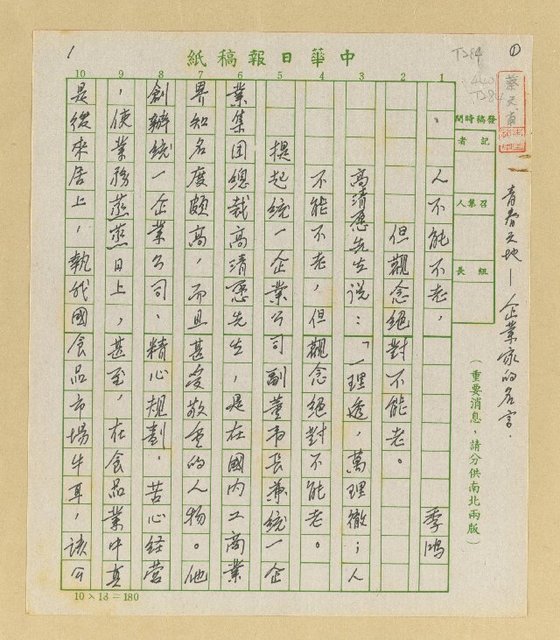 中華日報稿紙
青春天地—企業家的名字.
人不能不老，
但觀念絕對不能老。
季鴻
高清愿先生說：「一理透，萬理徹；人
不能不老，但觀念絕對不能老。
提起統一企業公司副董事長兼統一企
業集團總裁高清愿先生，是在國內工商業
界知名度頗高，而且甚受敬重的人物。他
創辦統一企業公司，精心規劃，苦心經營
，使業務蒸蒸日上，甚至，在食品業中真
是後來居上，執我國食品市場牛耳，該公
發稿時間
記者
召集人
組長
（重要消息，請分供南北兩版）
1 2 3 4 5 6 7 8 9 10
10×18=180
1
①